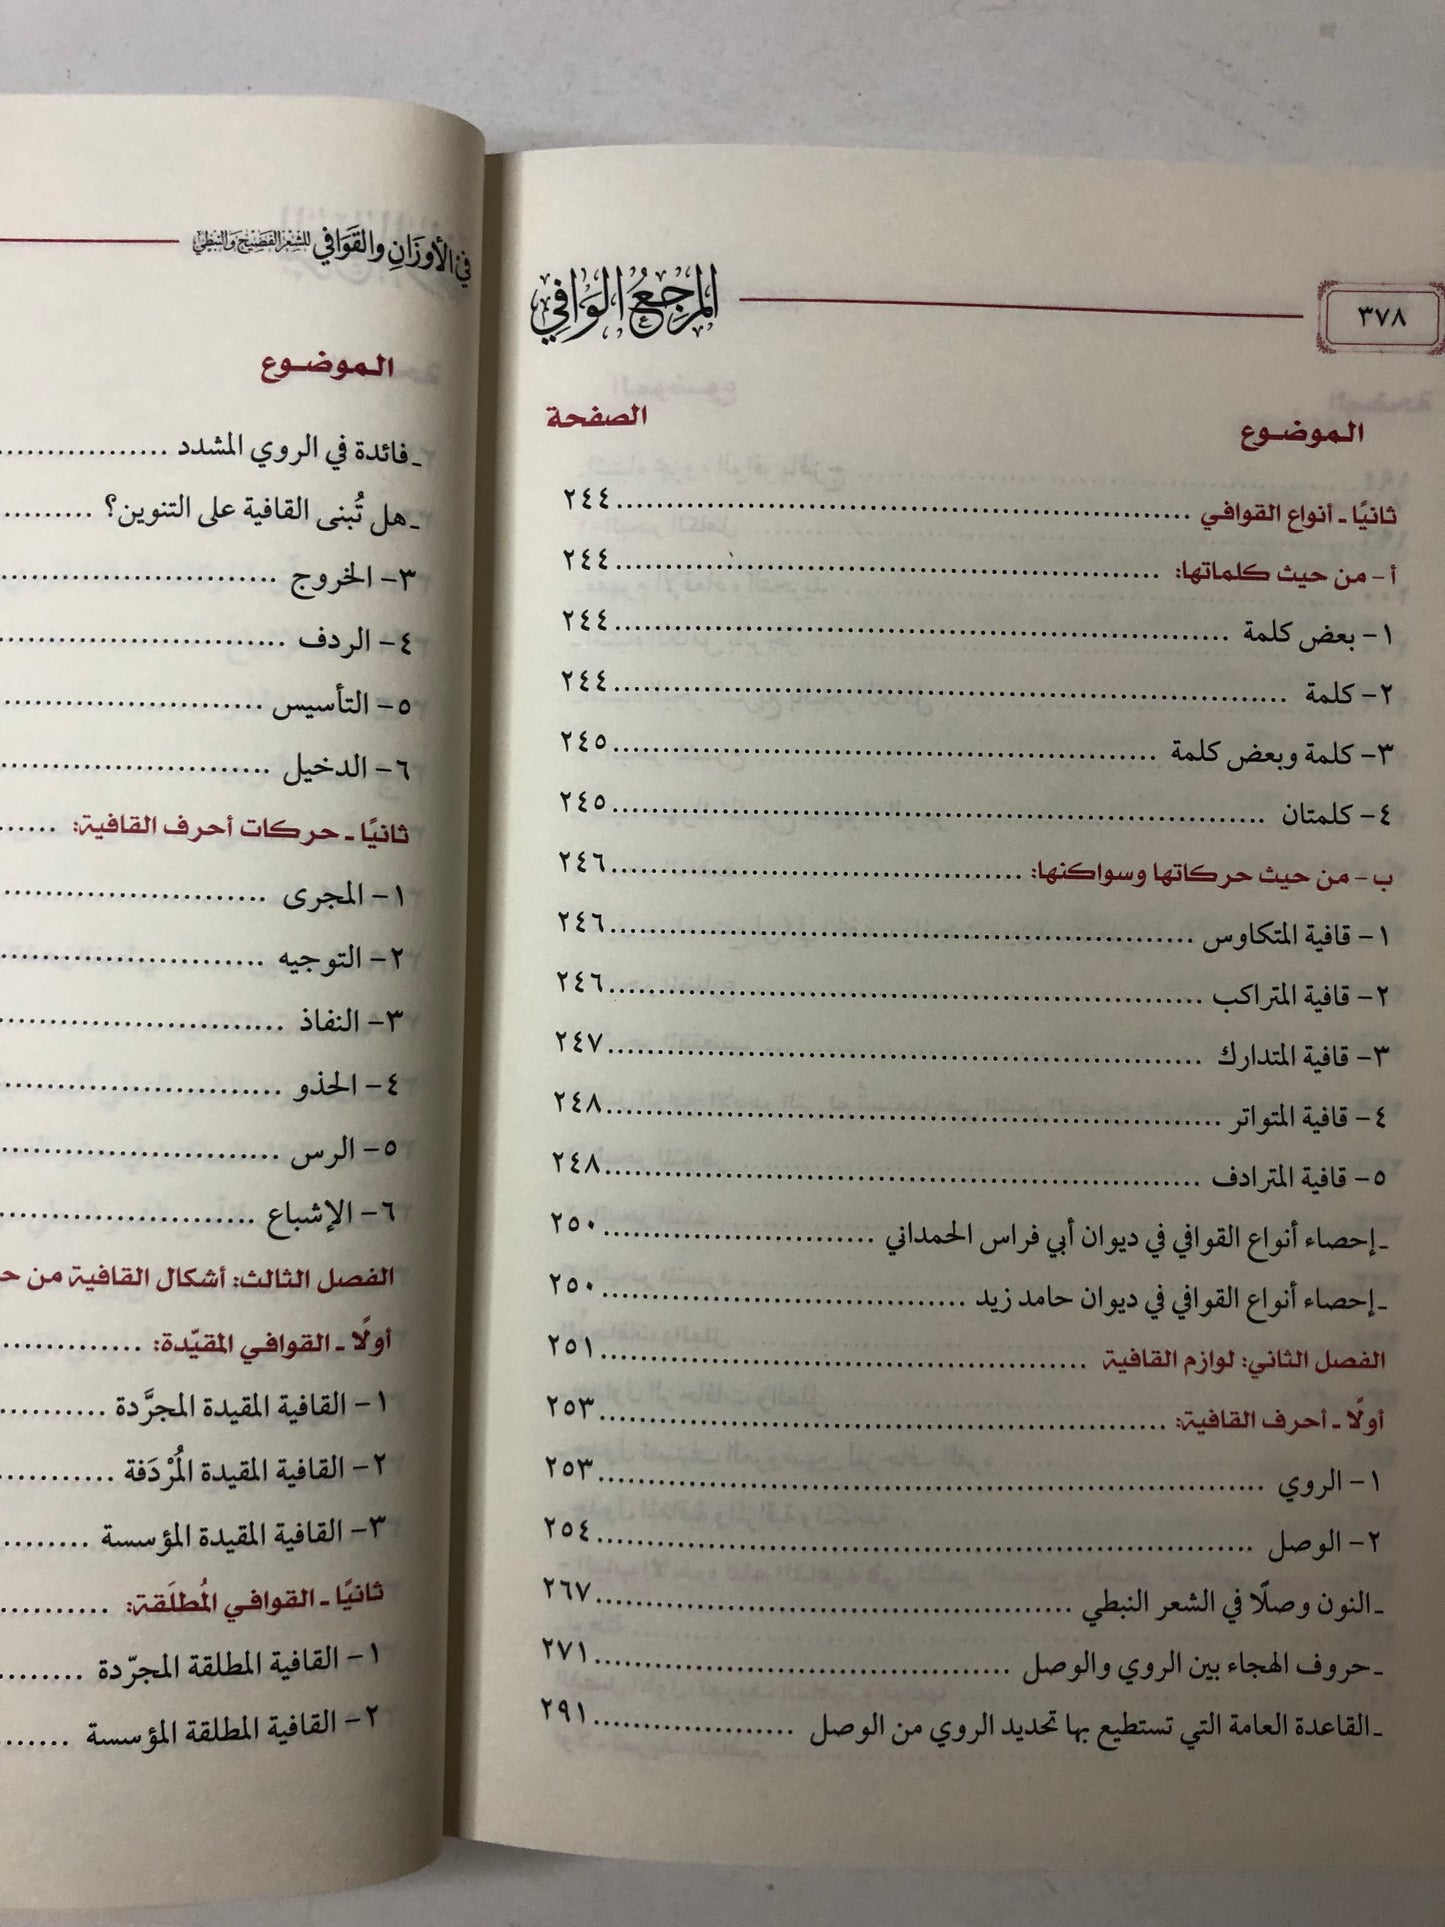 ٣٧٨
المرجع الوافي
الموضوع الصفحة
ثانيًا ـ أنواع القوافي ........ ٢٤٤
أ - من حيث كلماتها: ........ ٢٤٤
١- بعض كلمة ........ ٢٤٤
٢- كلمة ........ ٢٤٤
٣- كلمة وبعض كلمة ........ ٢٤٥
٤- كلمتان ........ ٢٤٥
ب - من حيث حركاتها وسواكنها: ........ ٢٤٦
١- قافية المتكاوس ........ ٢٤٦
٢- قافية المتراكب ........ ٢٤٦
٣- قافية المتدارك ........ ٢٤٧
٤- قافية المتواتر ........ ٢٤٨
٥- قافية المترادف ........ ٢٤٨
ـ إحصاء أنواع القوافي في ديوان أبي فراس الحمداني ........ ٢٥٠
ـ إحصاء أنواع القوافي في ديوان حامد زيد ........ ٢٥٠
الفصل الثاني: لوازم القافية ........ ٢٥١
أولًا ـ أحرف القافية: ........ ٢٥٣
١- الروي ........ ٢٥٣
٢- الوصل ........ ٢٥٤
ـ النون وصلًا في الشعر النبطي ........ ٢٦٧
ـ حروف الهجاء بين الروي والوصل ........ ٢٧١
ـ القاعدة العامة التي تستطيع بها تحديد الروي من الوصل ........ ٢٩١
في الأوزان والقوافي للشعر الفصيح والنبطي
الموضوع
ـ فائدة في الروي المشدد ........
ـ هل تُبنى القافية على التنوين؟ ........
٣- الخروج ........
٤- الردف ........
٥- التأسيس ........
٦- الدخيل ........
ثانيًا ـ حركات أحرف القافية: ........
١- المجرى ........
٢- التوجيه ........
٣- النفاذ ........
٤- الحذو ........
٥- الرس ........
٦- الإشباع ........
الفصل الثالث: أشكال القافية من
أولًا ـ القوافي المقيّدة: ........
١- القافية المقيدة المجرَّدة ........
٢- القافية المقيدة المُرْدَفة ........
٣- القافية المقيدة المؤسسة ........
ثانيًا ـ القوافي المُطلَقة: ........
١- القافية المطلقة المجرّدة ........
٢- القافية المطلقة المؤسسة ........